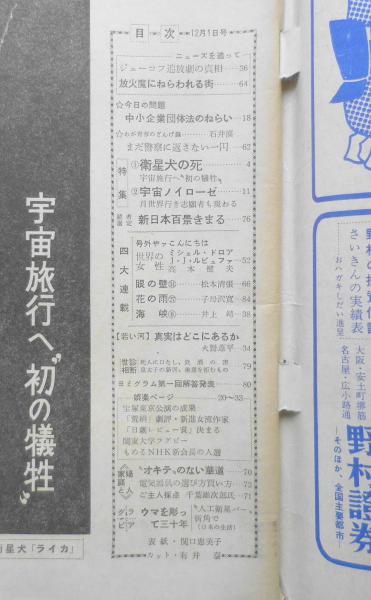 目次 12月1日号
ニュースを追って
ジューコフ追放劇の真相……56
放火魔にねらわれる街……64
☆今日の問題
中小企業団体法のねらい……18
☆わが青春のどんげ録……石井漠
まだ警察に返さない一円……62
特集
①衛星犬の死……4
宇宙旅行へ〝初の犠牲〟
②宇宙ノイローゼ……11
月世界行き志願者も現わる
新日本百景きまる……76
四大連載
号外やァこんにちは
世界の女性
ミシェル・ドロア
J・J・ルビュファ……52
高木健夫
眼の壁……松本清張……66
花の雨……子母沢寛……84
海峡……井上靖……38
【若い河】真実はどこにあるか
火野葦平……34
ヨミグラム第一回解答発表……80
娯楽ページ……20〜33
宝塚東京公演の成果
「荒砥」劇評・新進女流作家
「日劇レビュー賞」決まる
関東大学ラグビー
もめるNHK新会長の人選
〝オキテ〟のない華道……70
電気器具の選び方買い方……72
ご主人採点 千葉雄次郎氏……71
グラビア
ウマを彫って三十年
〝人工衛星バー〟
街角で
(日本の生活)
表紙・関口恵美子
カット・有井泰
宇宙旅行へ〝初の犠牲〟
衛星犬「ライカ」
さいきんの実績表
―おハガキしだい進呈
大阪・安土町堺筋
名古屋・広小路通
野村證券
―そのほか、全国主要都市―